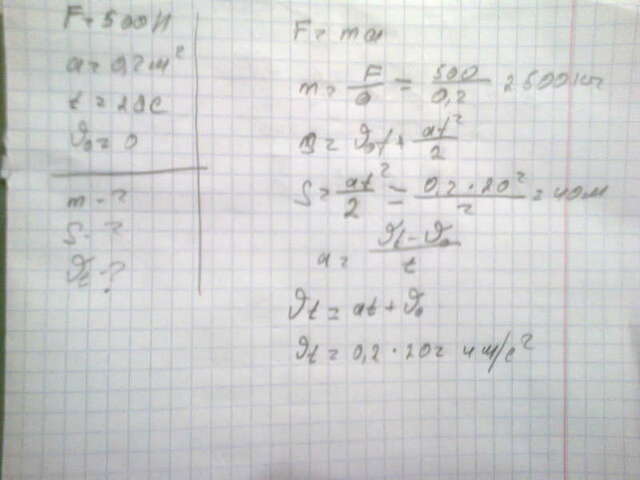 F = 500 Н
a = 0,2 м²
t = 20 c
ϑ₀ = 0
m - ?
S - ?
ϑt - ?
F = ma
m = F/a = 500/0,2 = 2500 кг
S = ϑ₀t + at²/2
S = at²/2 = 0,2 · 20²/2 = 40 м
a = ϑt - ϑ₀/t
ϑt = at + ϑ₀
ϑt = 0,2 · 20 = 4 м/с²